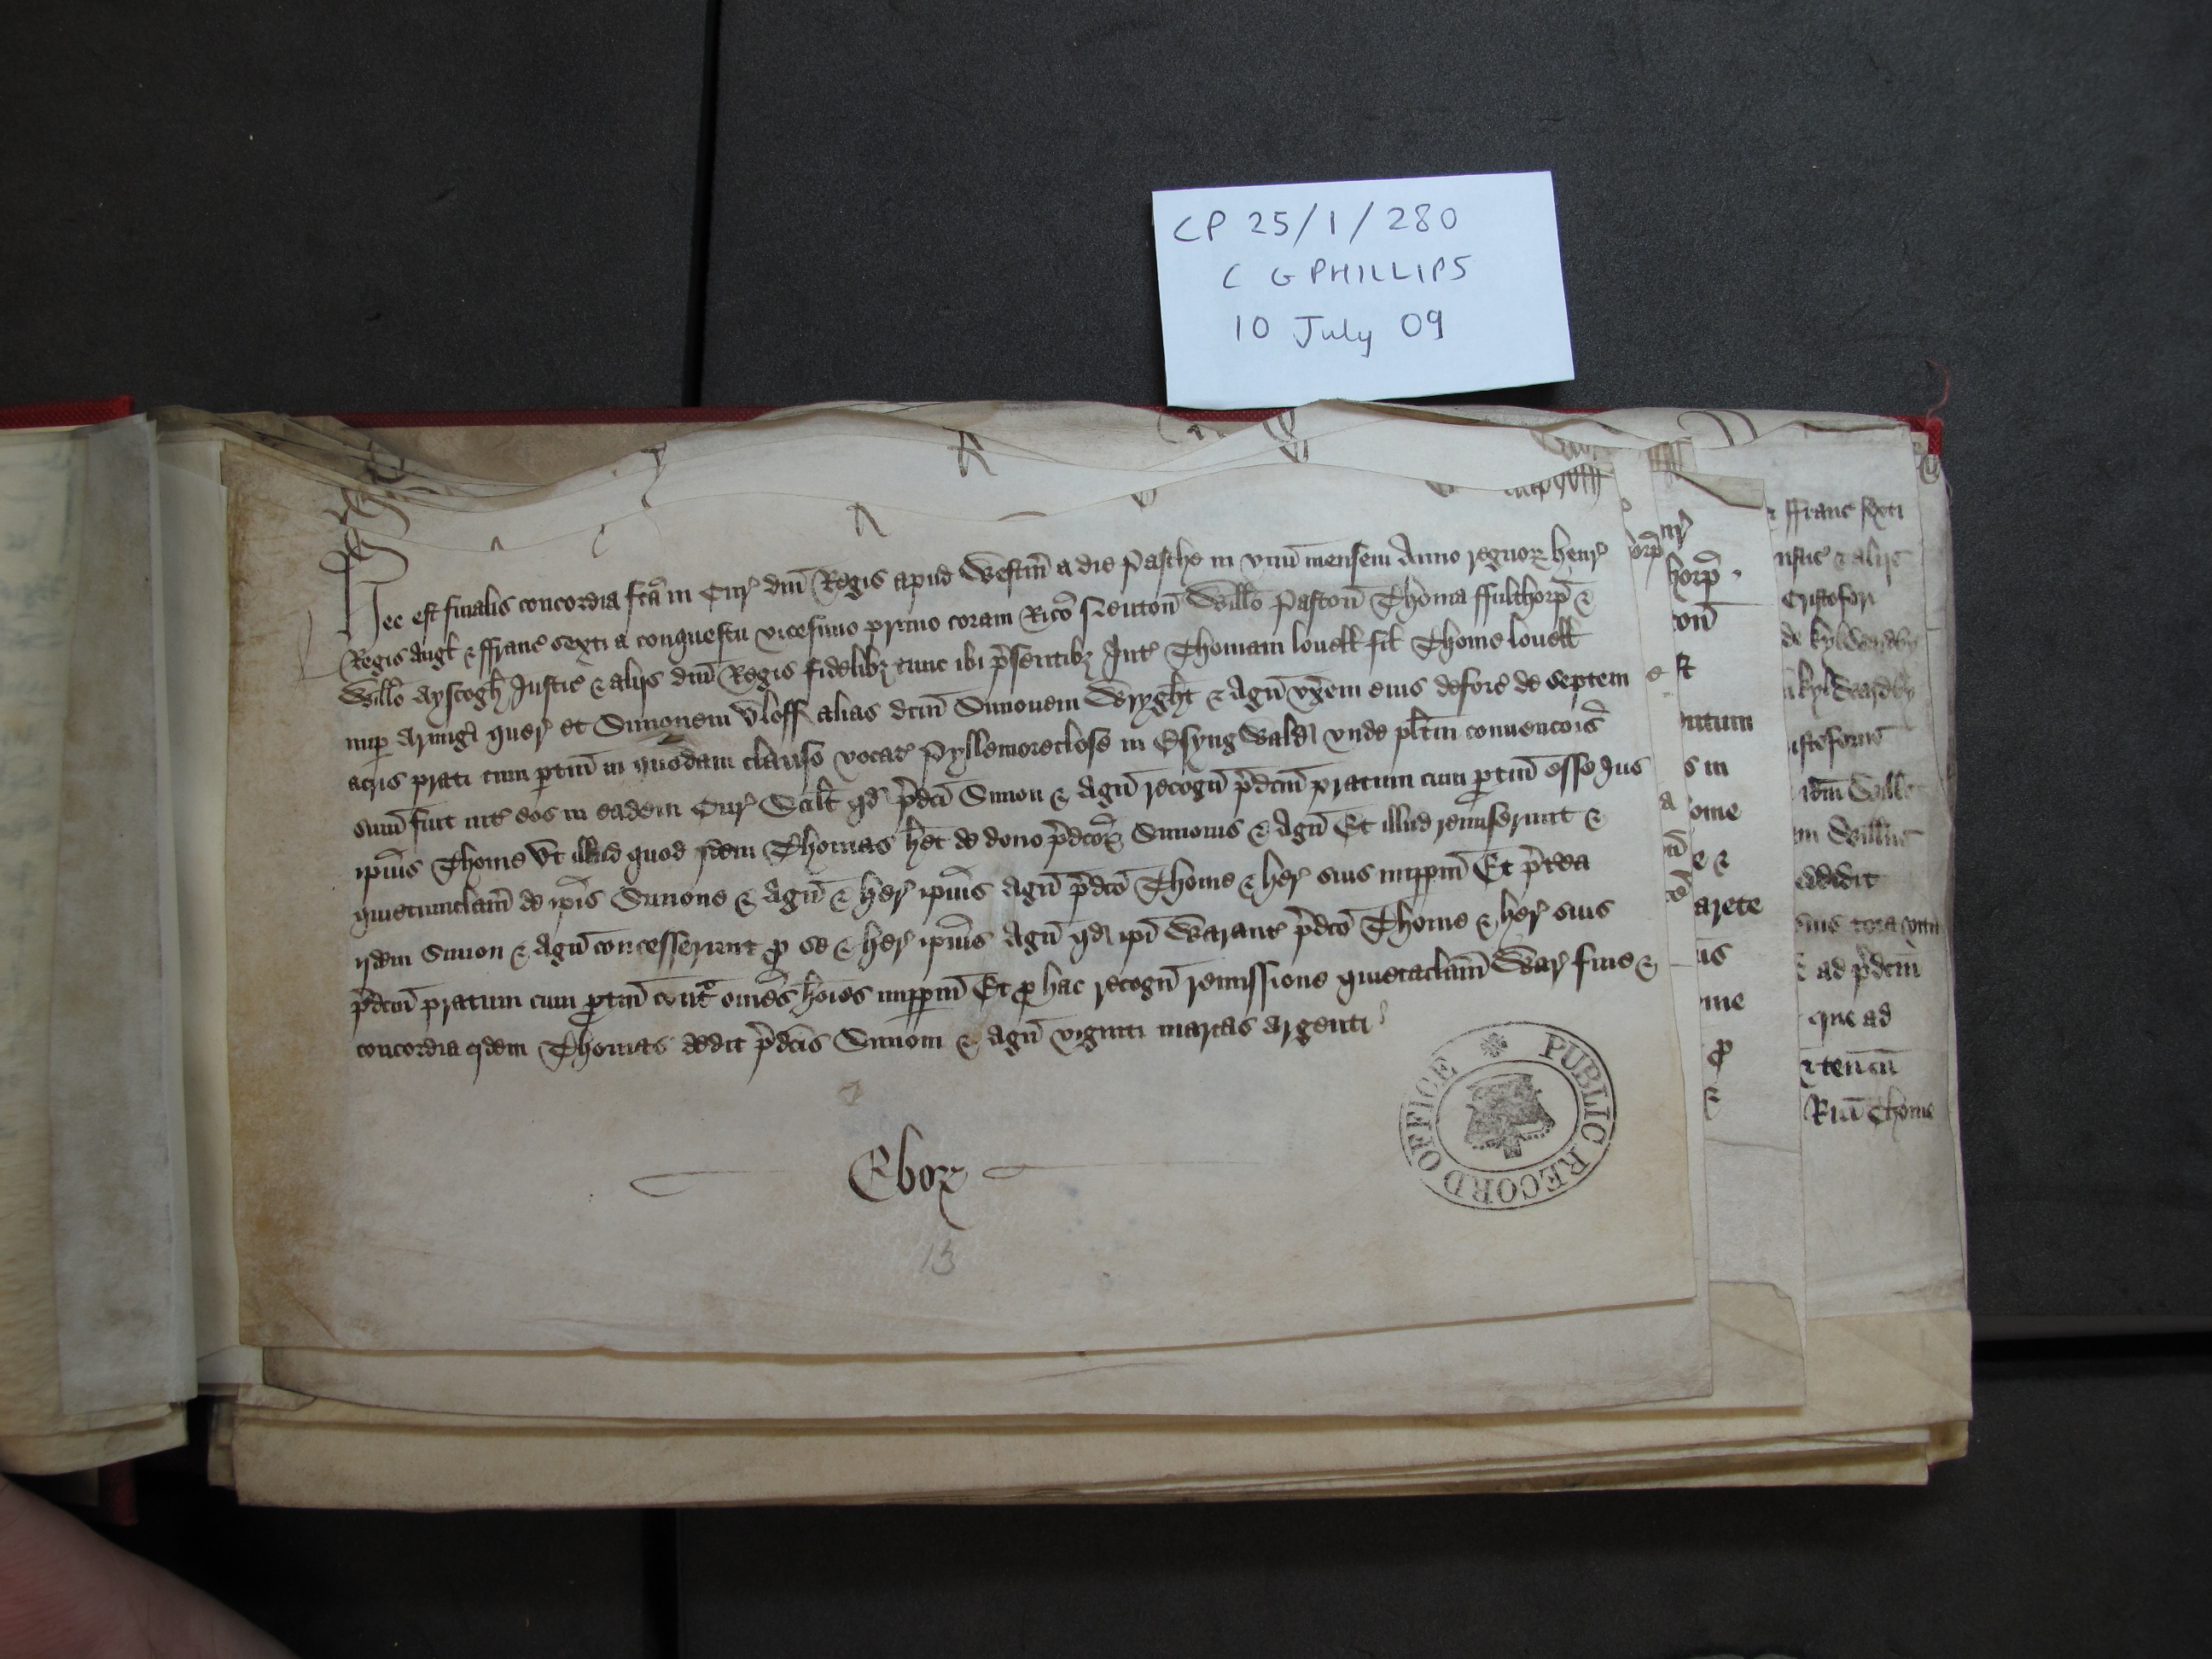 CP 25/1/280
C G PHILLIPS
10 July 09
Hec est finalis concordia fcā in Cur' dnī Regis apud Westm̄ a die Pasche in vnū mensem Anno regnoꝝ henr'
Regis Angl' & ffranc' sexti a conquestu vicesimo primo coram Rico' Neuton̄ Willo' Paston̄ Thoma ffulthorp' &
Willo' Ayscogh' Justic' & alijs dnī Regis fidelibꝫ tunc ibi p'sentibꝫ Int' Thomam louell' fil' Thome louell'
nup' Armig'i quer' et Simonem Vloff alias dcm̄ Simonem Wryght & Agn̄ vx'em eius deforc' de septem
acris prati cum ptin̄ in quodam clauso vocat' Pyllemoreclose in Esyngwald' vnde plitm̄ conuencōis
sum̄ fuit int' eos in eadem Cur' Scilt' qd' p'dcī Simon & Agn̄ recogn̄ p'dcm̄ pratum cum ptin̄ esse Jus
ipīus Thome Vt illud quod idem Thomas h'et de dono p'dcoꝝ Simonis & Agn̄ Et illud remiserunt &
quietumclam̄ de ipīs Simone & Agn̄ & her' ipīus Agn̄ p'dcō Thome & her' suis impp̄m Et p't'ea
ijdem Simon & Agn̄ concesserunt ꝓ se & her' ipīus Agn̄ qd' ipī Warant' p'dcō Thome & her' suis
p'dcm̄ pratum cum ptin̄ cont' om̄es hoīes impp̄m Et ꝓ hac recogn̄ remissione quietaclam̄ War' fine &
concordia idem Thomas dedit p'dcīs Simoni & Agn̄ viginti marcas argenti
Eboꝝ
13
PUBLIC RECORD OFFICE
& ffranc' sexti
& alijs
Cristofori
ntum
s in
ome
arete
me
que ad
Thome